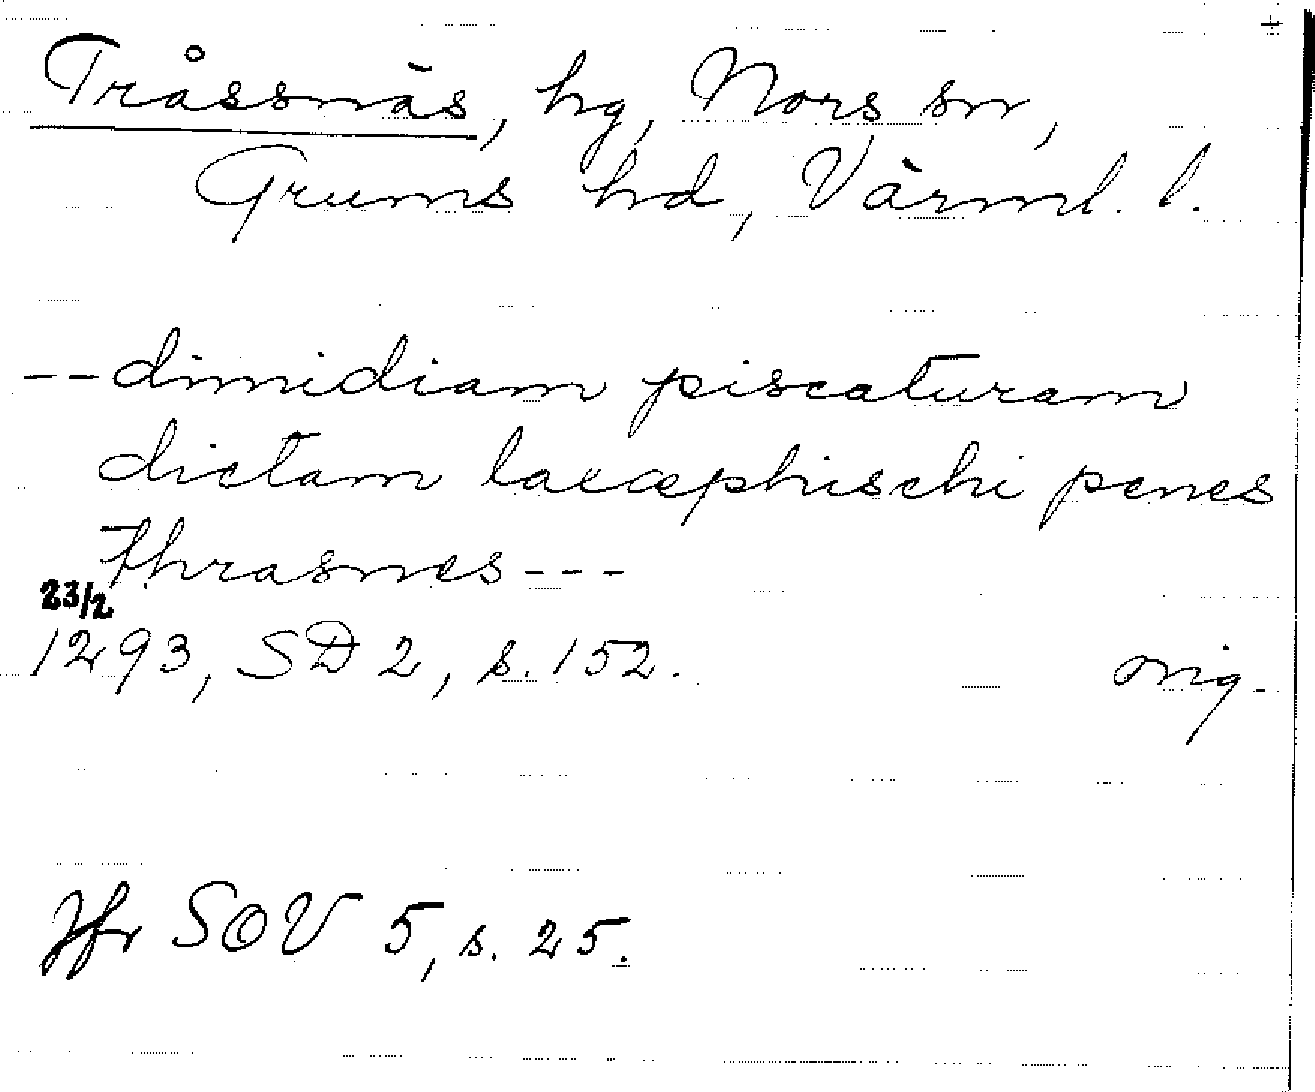 Tråssnäs, hg, Nors sn,
Grums hd, Värml. l.
--dimidiam piscaturam
dictam laxæphischi penes
thrasnes---
23/2
1293, SD 2, s. 152. orig.
Jfr SOV 5, s. 25.